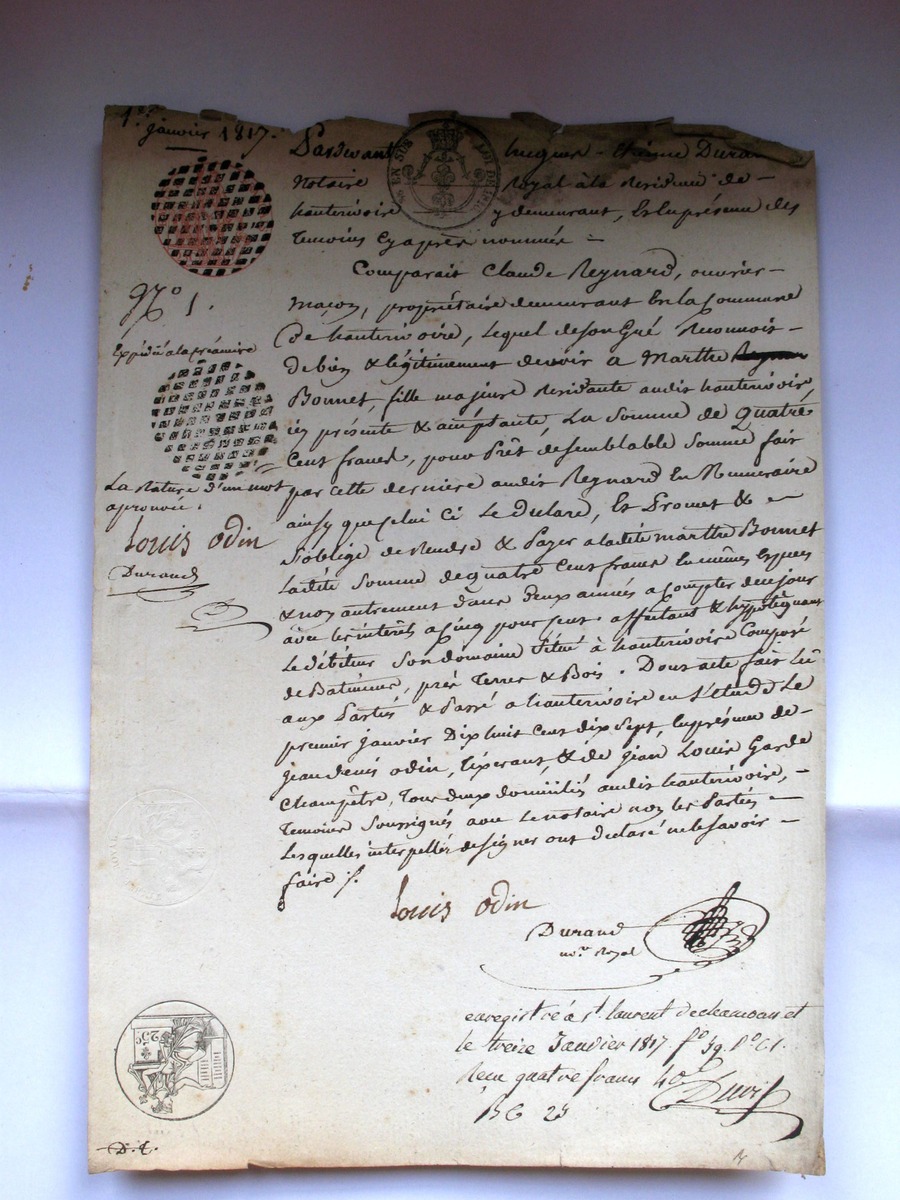 1er janvier 1817.
Pardevant hugues - Etienne Duran
Notaire Royal à la Residence de -
hauterivoire y demeurant, En la présence des
Temoins Cyaprès nommés -
Comparait Claude Reynard, ouvrier -
Maçon, propriétaire demeurant En la Commune
de hauterivoire, Lequel de son Gré Reconnois -
de bien & légitimement devoir à Marthe
Bonnet, fille majeure Residante audit hauterivoire,
ici présente & acceptante, La Somme de Quatre
Cent francs, pour Prêt de semblable Somme fait
par cette dernière audit Reynard En Numeraire
ainsy que Celui Ci Le déclare, Et Promet & -
s'oblige de Rendre & Payer a ladite marthe Bonnet
Ladite Somme de quatre Cent francs En mêmes Especes
& non autrement dans deux années a Compter de ce jour
avec les interêts a Cinq pour Cent affectant & hypotéquant
Le débiteur Son domaine Situé à hauterivoire Composé
de Batimens, prés Terres & Bois. Dont acte fait Lû
aux Parties & Passé a hauterivoire en L'etude Le
premier janvier Dix huit Cent dix Sept, En présence de -
Jean denis odin, & de jean Louis Garde
Champêtre, Tous deux domiciliés audit hauterivoire, -
Temoins Soussignés avec Le notaire non Les Parties -
Lesquelles interpellées de signer ont déclaré ne le Savoir -
faire /.
No 1.
Expédié a la créancière
La Rature d'un mot
aprouvée.
Louis odin
Durand
Louis odin
Durand
nore Royal
enregistré à St. laurent dechamousset
le treize Janvier 1817 fo 39. Ro C 1.
Recu quatre francs 40c
EN SUS
LOI DE
25c